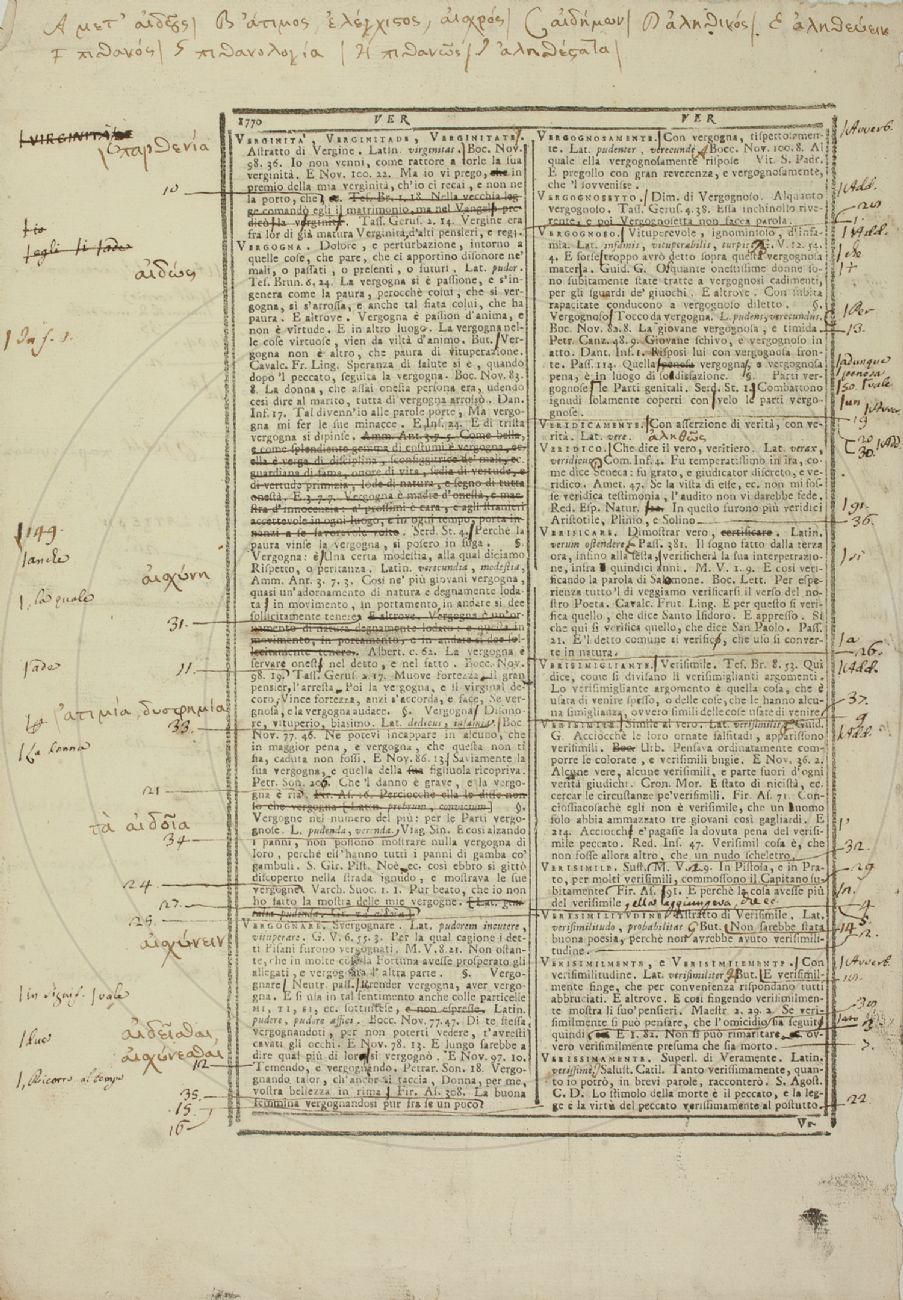 A μετ' αἰδοῦς| B ἄτιμος, ἐλέγχιστος, αἰσχρός| C αἰδήμων| D ἀληθικός| E ἀληθεύειν
F πιθανός| G πιθανολογία | H πιθανῶς| I ἀληθέστατα|
1770 VER VER
VERGINITÀ, VERGINITADE, VERGINITATE.
Astratto di Vergine. Latin. virginitas. Boc. Nov.
98. 36. Io non venni, come rattore a torle la sua
verginità. E Nov. 100. 22. Ma io vi prego, che in
premio della mia verginità, ch'io ci recai, e non ne
la porto, che ec. Tes. Br. 1. 18. Nella vecchia leg-
ge comandò egli il matrimonio, ma nel Vangelo pre-
dicò la verginità. Tass. Gerus. 2. 14. Vergine era
fra lor di già matura Verginità, d'alti pensieri, e regj.
VERGOGNA. Dolore, e perturbazione, intorno a
quelle cose, che pare, che ci apportino disonore ne'
mali, o passati, o presenti, o futuri. Lat. pudor.
Tes. Brun. 6. 24. La vergogna si è passione, e s'in-
genera come la paura, perocchè colui, che si ver-
gogna, si s'arrossa, e anche tal fiata colui, che ha
paura. E altrove. Vergogna è passion d'anima, e
non è virtude. E in altro luogo. La vergogna nel-
le cose virtuose, vien da viltà d'animo. But. Ver-
gogna non è altro, che paura di vituperazione.
Cavalc. Fr. Ling. Speranza di salute si è, quando
dopo 'l peccato, seguita la vergogna. Boc. Nov. 83.
8. La donna, che assai onesta persona era, udendo
cesi dire al marito, tutta di vergogna arrossò. Dan.
Inf. 17. Tal divenn'io alle parole porte, Ma vergo-
gna mi fer le sue minacce. E Inf. 24. E di trista
vergogna si dipinse. Amm. Ant. 3. 7. 5. Come bella,
e come splendiente gemma di costumi è vergogna, ec.
ella è verga di disciplina, sconfiggitrice de' mali, ec.
guardiana di fama, onore di vita, sedia di vertude, e
di vertude primizia, lode di natura, e segno di tutta
onestà. E 3. 7. 7. Vergogna è madre d'onestà, e mae-
stra d'innocenzia: a' prossimi è cara, e agli stranieri
accettevole in ogni luogo, e in ogni tempo, porta in-
nanzi a se favorevole volto. Serd. St. 4. Perchè la
paura vinse la vergogna, si posero in fuga. §.
Vergogna: è Una certa modestia, alla qual diciamo
Rispetto, o peritanza. Latin. verecundia, modestia,
Amm. Ant. 3. 7. 3. Così ne' più giovani vergogna,
quasi un'adornamento di natura e degnamente loda-
ta in movimento, in portamento, in andare si dee
sollicitamente tenere. E altrove. Vergogna è un'or-
namento di natura degnamente lodato: e quella in
movimento, in portamento, e in andare si dee sol-
lecitamente tenere. Albert. c. 62. La vergogna è
servare onestà nel detto, e nel fatto. Bocc. Nov.
98. 19. Tass. Gerus. 2. 17. Muove fortezza il gran
pensier, l'arresta Poi la vergogna, e il virginal de-
coro, Vince fortezza, anzi s'accorda, e face, Se ver-
gogna, e la vergogna audace. §. Vergogna Disono-
re, vituperio, biasimo. Lat. dedecus, infamia. Boc.
Nov. 77. 46. Ne potevi incappare in alcuno, che
in maggior pena, e vergogna, che questa non ti
sia, caduta non fossi. E Nov. 86. 13. Saviamente la
sua vergogna, e quella della sua figliuola ricopriva.
Petr. Son. 206. Che 'l danno è grave, e la vergo-
gna è ria. Fir. As. 76. Perciocche ella lo disse non
so che vergogna (Latin. probrum, convicium) §.
Vergogne nel numero del più: per le Parti vergo-
gnose. L. pudenda, verenda. Viag. Sin. E così alzando
i panni, non possono mostrare nulla vergogna di
loro, perchè ell'hanno tutti i panni di gamba co'
gambuli. S. Gir. Pist. Noè, ec. così ebbro si gittò
discoperto nella strada ignudo, e mostrava le sue
vergogne. Varch. Suoc. 1. 1. Pur beato, che io non
ho fatto la mostra delle mie vergogne.
VERGOGNARE. Svergognare. Lat. pudorem incutere,
vituperare. G. V. 6. 55. 3. Per la qual cagione i det-
ti Pisani furono vergognati. M. V. 8. 21. Non ostan-
te, che in molte cose la Fortuna avesse prosperato gli
allegati, e vergogna l'altra parte. §. Vergo-
gnare Neutr. pass. Prender vergogna, aver vergo-
gna. E si usa in tal sentimento anche colle particelle
MI, TI, SI, ec. sottintese, e non espresse. Latin.
pudere, pudore affici. Bocc. Nov. 77. 47. Di te stessa,
vergognandoti, per non poterti vedere, t'avresti
cavati gli occhi. E Nov. 78. 13. E lungo sarebbe a
dire qual più di loro si vergognò. E Nov. 97. 10.
Temendo, e vergognando. Petrar. Son. 18. Vergo-
gnando talor, ch'ancor si taccia, Donna, per me,
vostra bellezza in rima. Fir. As. 308. La buona
femmina vergognandosi pur fra se un poco.
VERGOGNOSAMENTE. Con vergogna, rispettosamen-
te. Lat. pudenter, verecunde. Bocc. Nov. 100. 8. Al
quale ella vergognosamente rispose Vit. S. Padr.
E pregollo con gran reverenza, e vergognosamente,
che 'l sovvenisse.
VERGOGNOSETTO. Dim. di Vergognoso. Alquanto
vergognoso. Tass. Gerus. 4. 38. Essa inchinollo rive-
rente, e poi Vergognosetta non facea parola.
VERGOGNOSO. Vituperevole, ignominioso, d'infa-
mia. Lat. infamis, vituperabilis, turpis. G. V. 12. 54.
4. E fosse troppo avrò detto sopra questa vergognosa
materia. Guid. G. O quante onestissime donne so-
no subitamente state tratte a vergognosi cadimenti,
per gli sguardi de' giuochi. E altrove. Con subita
rapacitate conducono a vergognoso diletto. §.
Vergognoso Tocco da vergogna. L. pudens, verecundus.
Boc. Nov. 82. 8. La giovane vergognosa, e timida
Petr. Canz. 48. 9. Giovane schivo, e vergognoso in
atto. Dant. Inf. 1. Risposi lui con vergognosa fron-
te. Pass. 114. Quella penosa vergogna, e vergognosa
pena, è in luogo di soddisfazione. §. Parti ver-
gognose le Parti genitali. Serd. St. 1. Combattono
ignudi solamente coperti con velo le parti vergo-
gnose.
VERIDICAMENTE. Con asserzione di verità, con ve-
rità. Lat. vere. ἀληθῶς
VERIDICO. Che dice il vero, veritiero. Lat. verax,
veridicus. Com. Inf. 4. Fu temperatissimo in ira, co-
me dice Seneca: fu gratioso, fu giudicator discreto, e ve-
ridico. Amet. 47. Se la vista di esse, ec. non mi fos-
se veridica testimonia, l'audito non vi darebbe fede.
Red. Esp. Natur. In questo furono più veridici
Aristotile, Plinio, e Solino.
VERIFICARE. Dimostrar vero, certificare. Latin.
verum ostendere. Pass. 381. Il sogno fatto dalla terza
ora, infino alla sesta, verificherà la sua interpretazio-
ne, infra quindici anni. M. V. 1. 9. E così veri-
ficando la parola di Salomone. Boc. Lett. Per espe-
rienza tutto 'l dì veggiamo verificarsi il verso del no-
stro Poeta. Cavalc. Frut. Ling. E per questo si veri-
fica quello, che dice Santo Isidoro. E appresso. Sì
che qui si verifica quello, che dice San Paolo. Pass.
21. E 'l detto comune si verifica, che uso si conver-
te in natura.
VERISIMIGLIANTE. Verisimile. Tes. Br. 8. 53. Qui
dice, come si divisano li verisimiglianti argomenti.
Lo verisimigliante argomento è quella cosa, che è
usata di venire spesso, o delle cose, che le hanno alcu-
na simiglianza, ovvero simili delle cose usate di venire.
VERISIMILE. Simile al vero. Lat. verisimilis. Guid.
G. Acciocchè le loro ornate falsitadi, apparissono
verisimili. Bocc. Urb. Pensava ordinatamente com-
porre le colorate, e verisimili bugie. E Nov. 36. 2.
Alcune vere, alcune verisimili, e parte fuori d'ogni
verità giudichi. Cron. Mor. E stato di nicistà, ec.
cercar le circustanze pe' verisimili. Fir. As. 71. Con-
ciossiacosachè egli non è verisimile, che un huomo
solo abbia ammazzato tre giovani così gagliardi. E
214. Acciocchè e' pagasse la dovuta pena del verisi-
mile peccato. Red. Ins. 47. Verisimil cosa è, che
non fosse allora altro, che un nudo scheletro.
VERISIMILE. Sust. M. V. 2. 29. In Pistoia, e in Pra-
to, per molti verisimili, commossono il Capitano su-
bitamente. Fir. As. 91. E perchè la cosa avesse più
del verisimile, ella v'aggiungeva, che ec.
VERISIMILITUDINE. Astratto di Verisimile. Lat.
verisimilitudo, probabilitas. But. Non sarebbe stata
buona poesia, perchè non avrebbe avuto verisimili-
tudine.
VERISIMILMENTE, e VERISIMILEMENTE. Con
verisimilitudine. Lat. verisimiliter. But. E verisimil-
mente finge, che per convenienza rispondano tutti
abbruciati. E altrove. E così fingendo verisimilmen-
te mostra li suo' pensieri. Maestr. 2. 29. 2. Se veri-
similmente si può pensare, che l'omicidio sia seguito
quindi ec. E 1. 82. Non si può rimaritare, ec. ov-
vero verisimilmente presuma che sia morto.
VERISSIMAMENTE. Superl. di Veramente. Latin.
verissime. Salust. Catil. Tanto verissimamente, quan-
to io potrò, in brevi parole, racconterò. S. Agost.
C. D. Lo stimolo della morte è il peccato, e la leg-
ge è la virtù del peccato verissimamente al postutto.
Ve-
VIRGINITÀ
παρθενία
10
αἰδώς
Inf. 1.
149.
anche
αἰσχύνη
la quale
31.
ade
11
ἀτιμία, δυσφημία
33.
La donna
21
τὰ αἰδοῖα
34
24
27.
25.
αἰσχύνειν
in signif. vale
due
αἰδεῖσθαι
αἰσχύνεσθαι
12
35.
15.
16
Avverb.
Add.
20
1.
Add.
Per
13.
adunque
penosa
50. vale
un
19
20
30.
91.
36.
26.
Add.
37.
9
Add.
32.
29
4
5.
14
2.
Avverb.
10.
30
7.
22.